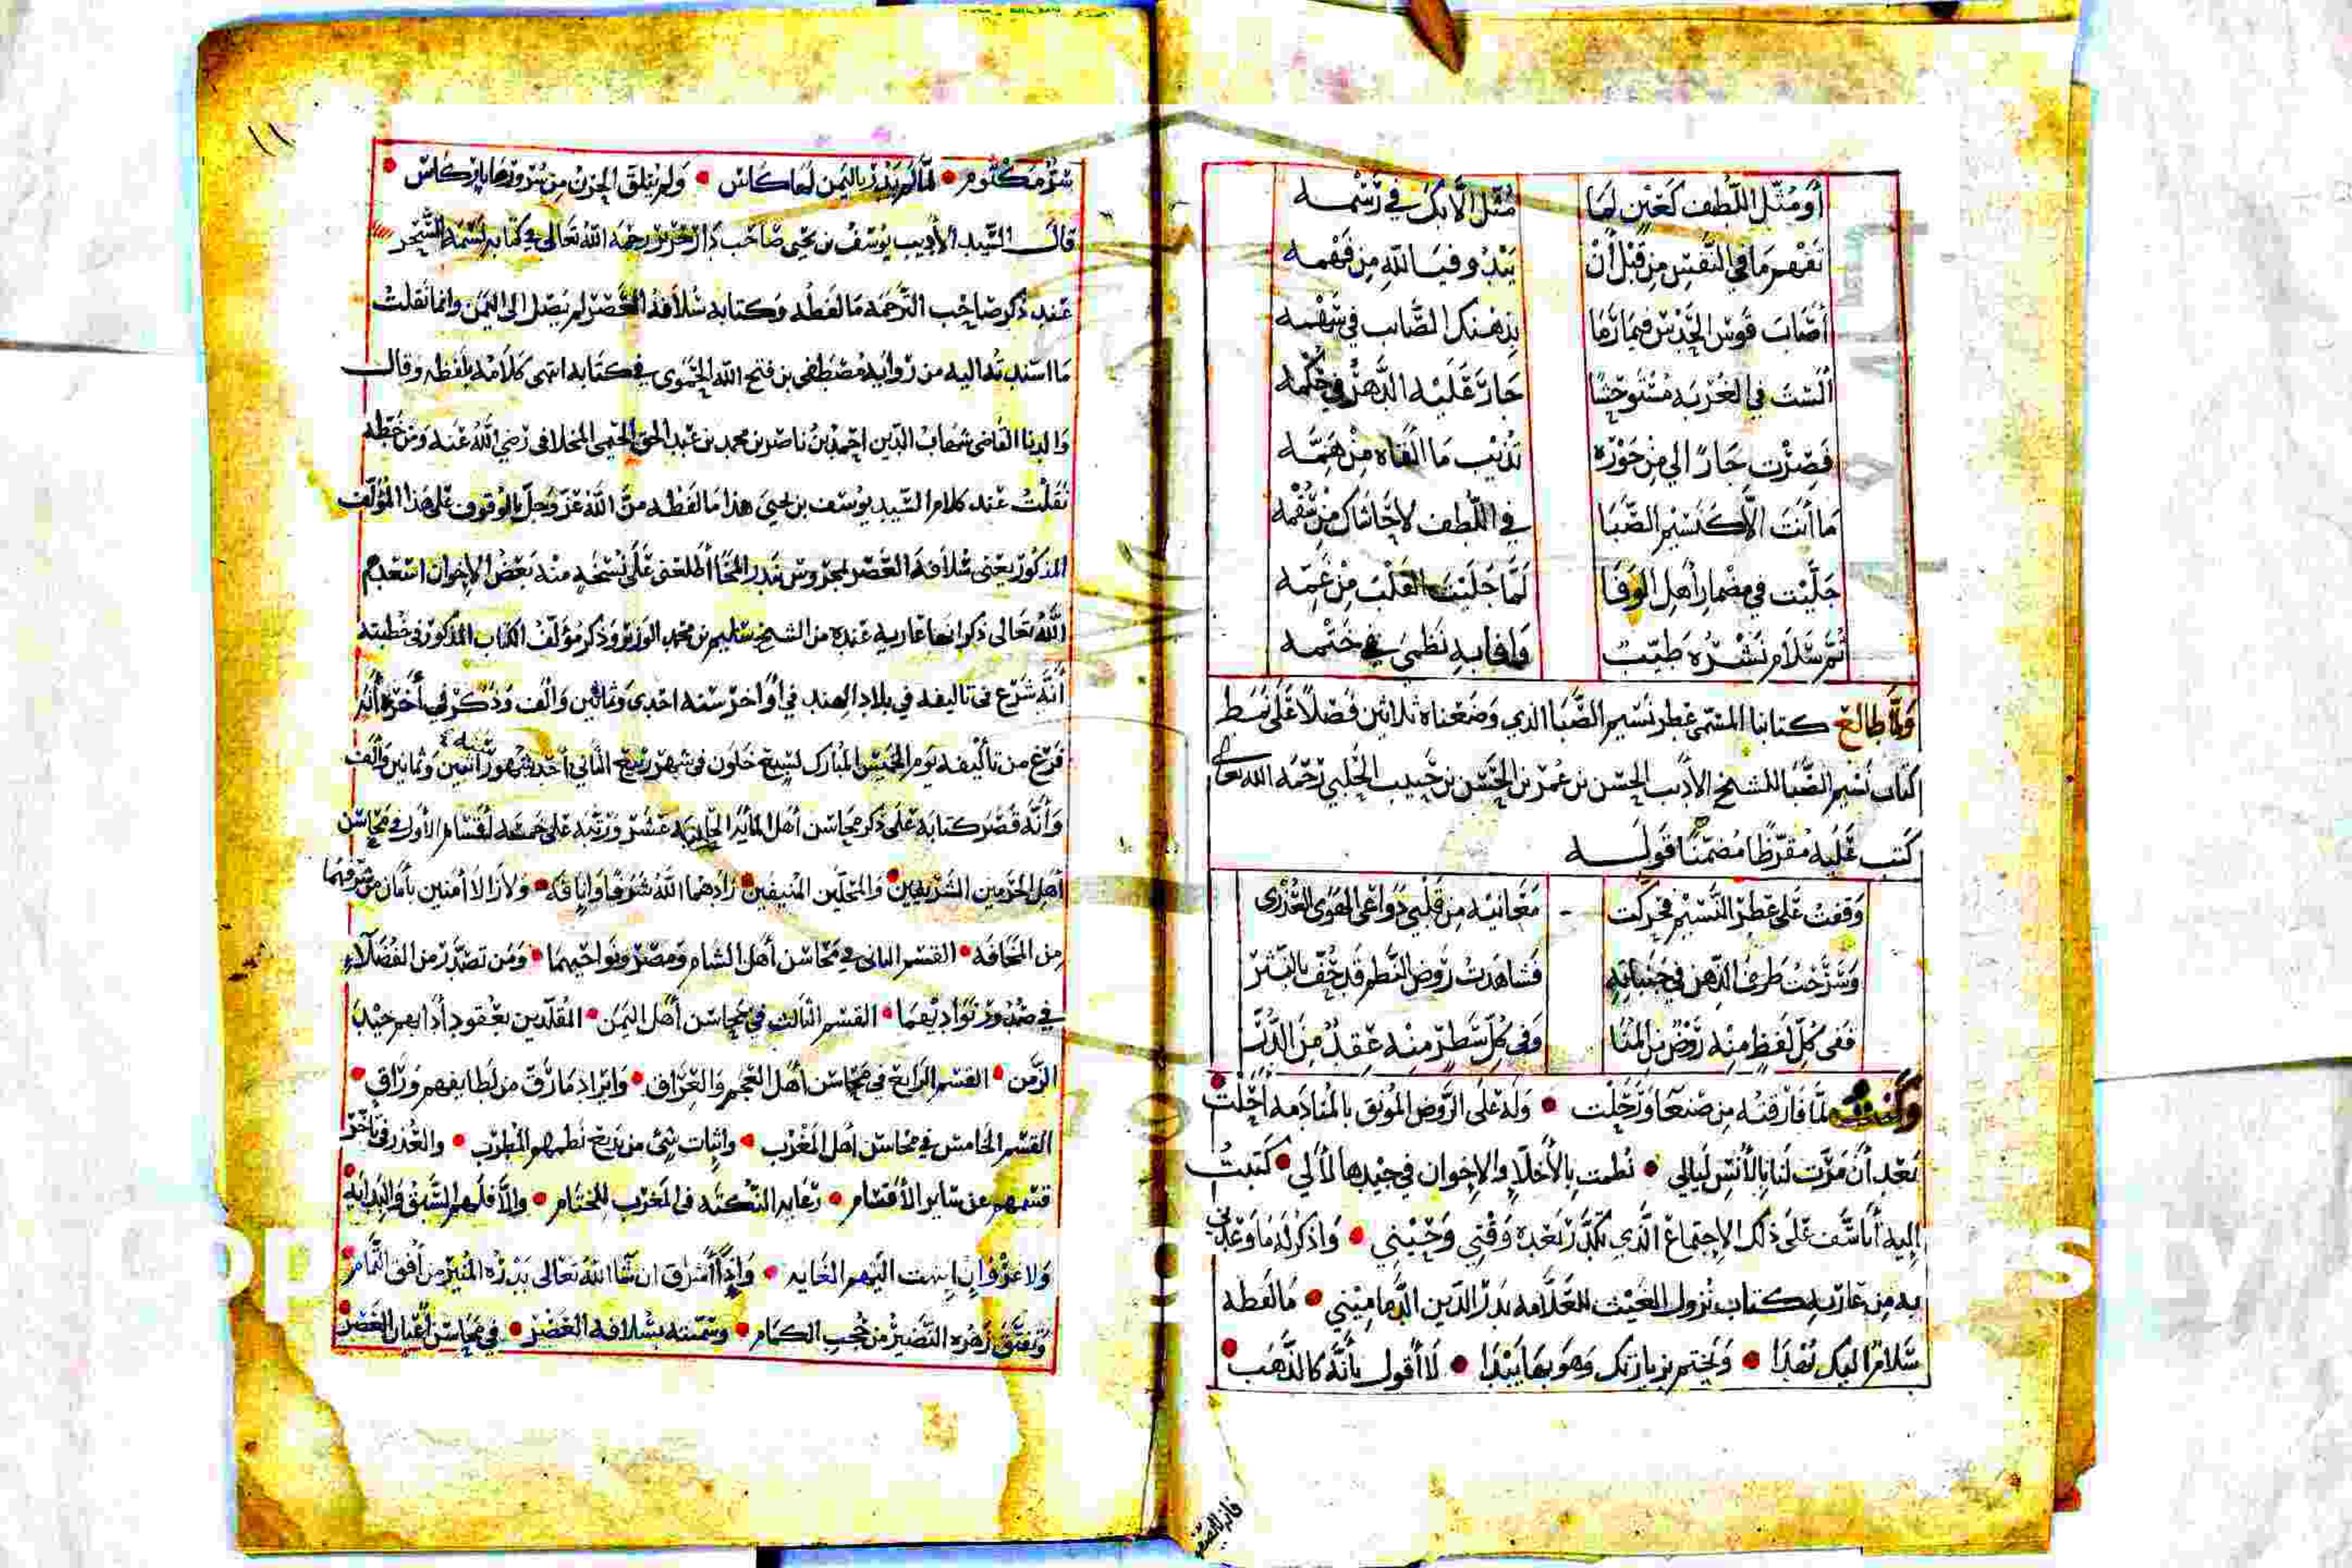 أو مثل اللطف كعين لها مثل الا بك في رسمه
تفهم ما في النفس من قبل أن يبدو فيا لله من فهمه
أصاب قوس الحدس فيما رما بذهنك الصايب في سهمه
ألست في الغربة مستوحشا جار عليه الدهر في حكمه
فصرت جارا لي من جوره تذيب ما ألقاه من همه
ما أنت الا كنسيم الصبا في اللطف لا حاشاك من سقمه
جليت في مضمار أهل الوفا لما جليت القلب من غمه
ثم سلام نشره طيب وافا به نظمي في ختمه
ولما طالع كتابنا المسمى عطر نسيم الصبا الذي وضعناه ثلاثين فصلا على نمط
كتاب نسيم الصبا للشيخ الأديب الحسن بن عمر بن الحسن بن حبيب الحلبي رحمه الله تعالى
كتب عليه مقرظا مضمنا قوله
وقفت على عطر النسيم فحركت معانيه من قلبي دواعي الهوى العذري
وسرحت طرف الذهن في جنباته فشاهدت روض النظم قد حف بالنثر
ففي كل لفظ منه روض من المنا وفي كل سطر منه عقد من الدر
لما فارقته من صنعا ورحلت وله على الروض المونق بالمنادمة أحلت
بعد أن مرت لنا بالأنس ليالي نظمت بالأخلا والإخوان في جيدها لآلي كتبت
إليه أتأسف على ذلك الاجتماع الذي تكدر بعده وقتي وحيني واذكر له ما وعدني
به من عارية كتاب نزول الغيث للعلامة بدر الدين الدماميني ما لفظه
سلام اليك يهدا ويختم بزيارتك وهو بها يبدا لا أقول بأنه كالذهب
١١
سر مكتوم لما لم يدر باليمن لها كاس ولم يتلق الحزن من سرورها بابركاس
قال السيد الأديب يوسف بن يحيى صاحب رحمه الله تعالى في كتابه نسمة السحر
عند ذكر صاحب الترجمة ما لفظه وكتابه سلافة العصر لم يصل الى اليمن وانما نقلت
ما اسندته اليه من رواية مصطفى بن فتح الله الحموي في كتابه انتهى كلامه بلفظه وقال
والدنا القاضي شهاب الدين احمد بن ناصر بن محمد بن عبد الحق المخلافي رضي الله عنه ومن خطه
نقلت عند كلام السيد يوسف بن يحيى هذا ما لفظه من الله عز وجل بالوقوف على هذا المؤلف
المذكور يعني سلافة العصر بمحروس بندر المخا أطلعني على نسخة منه بعض الإخوان اسعدهم
الله تعالى ذكر انها عارية عنده من الشيخ سليم بن محمد الوزير وذكر مؤلف الكتاب المذكور في خطبته
أنه شرع في تاليفه في بلاد الهند في أواخر سنة احدى وثمانين وألف وذكر في آخره أنه
فرغ من تأليفه يوم الخميس المبارك لسبع خلون في شهر ربيع الثاني أحد شهور سنة اثنين وثمانين وألف
وأنه قصر كتابه على ذكر محاسن أهل المائة الحادية عشر ورتبه على خمسة أقسام الأول في محاسن
أهل الحرمين الشريفين والمحلين المنيفين زادهما الله شرفا وانافة ولا زالا أمنين بأمان من شرفهما
من المخافة القسم الثاني في محاسن أهل الشام ومصر ونواحيهما ومن تصدر من الفضلاء
في صدور نواديهما القسم الثالث في محاسن أهل اليمن المقلدين بعقود أدابهم جيد
الزمن القسم الرابع في محاسن أهل العجم والعراق وايراد ما رق من لطايفهم وراق
القسم الخامس في محاسن أهل المغرب واثبات شي من بديع نظمهم المطرب والعذر في تأخر
قسمهم عن ساير الأقسام رعاية النكتة في المغرب للختام والا فلهم السبق والبداية
ولا غرو ان انتهت اليهم الغاية واذا أشرق ان شا الله تعالى بدره المنير من أفق التمام
وتفتق زهره النضير من حجب الكمام وسمته بسلافة العصر في محاسن أعيان العصر